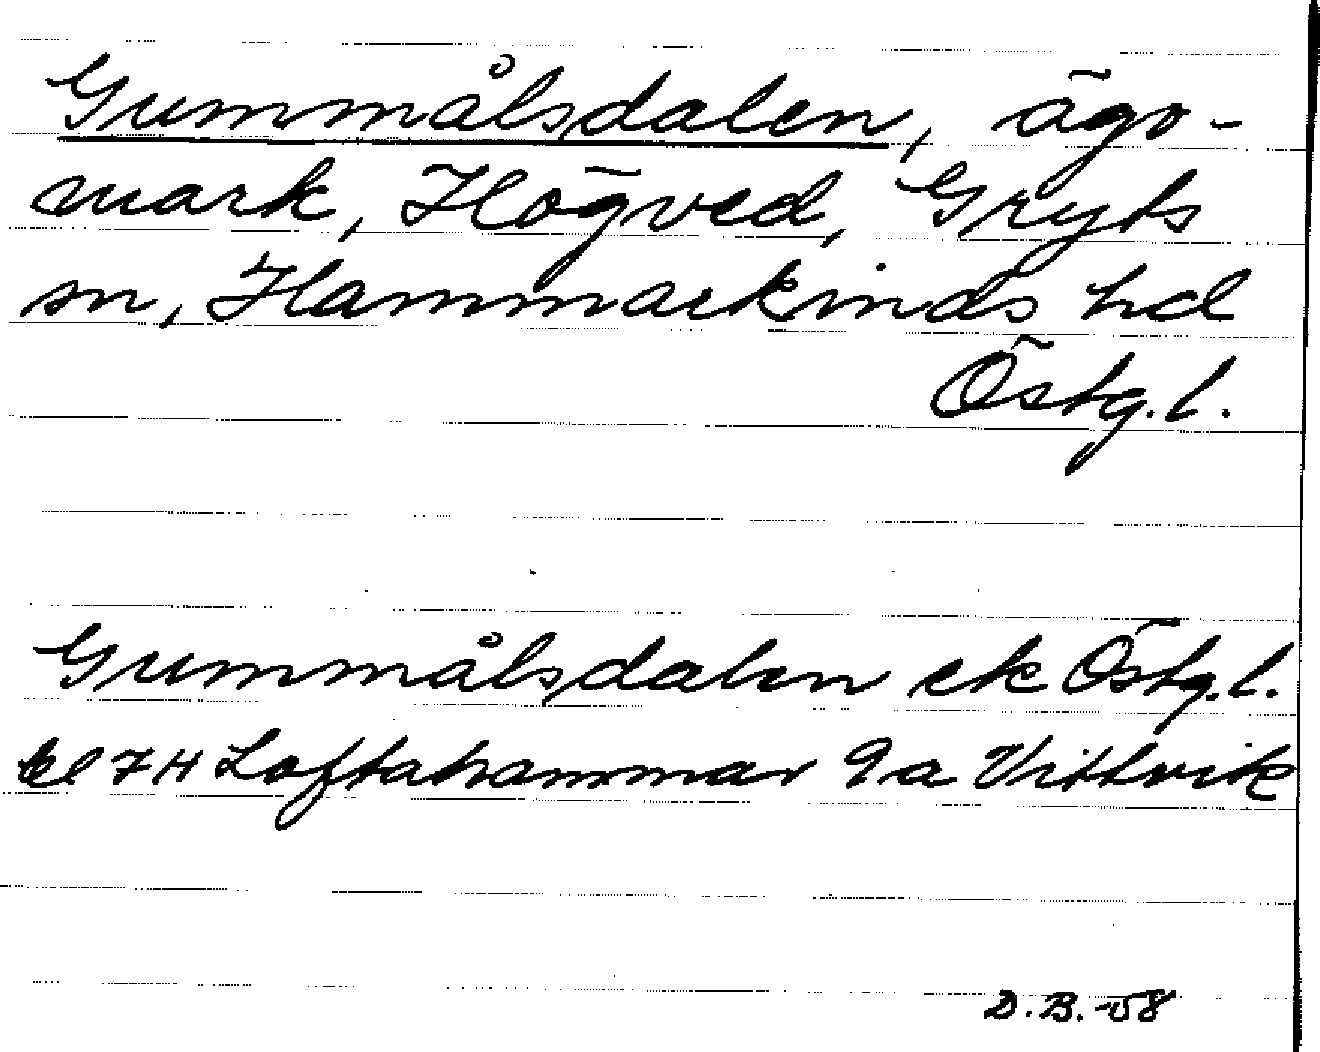 Gummålsdalen, ägo-
mark, Högved, Gryts
sn, Hammarkinds hd
Östg.l.
Gummålsdalen ek Östg.l.
bl 7H Loftahammar 9a Vittvik
D.B.-58